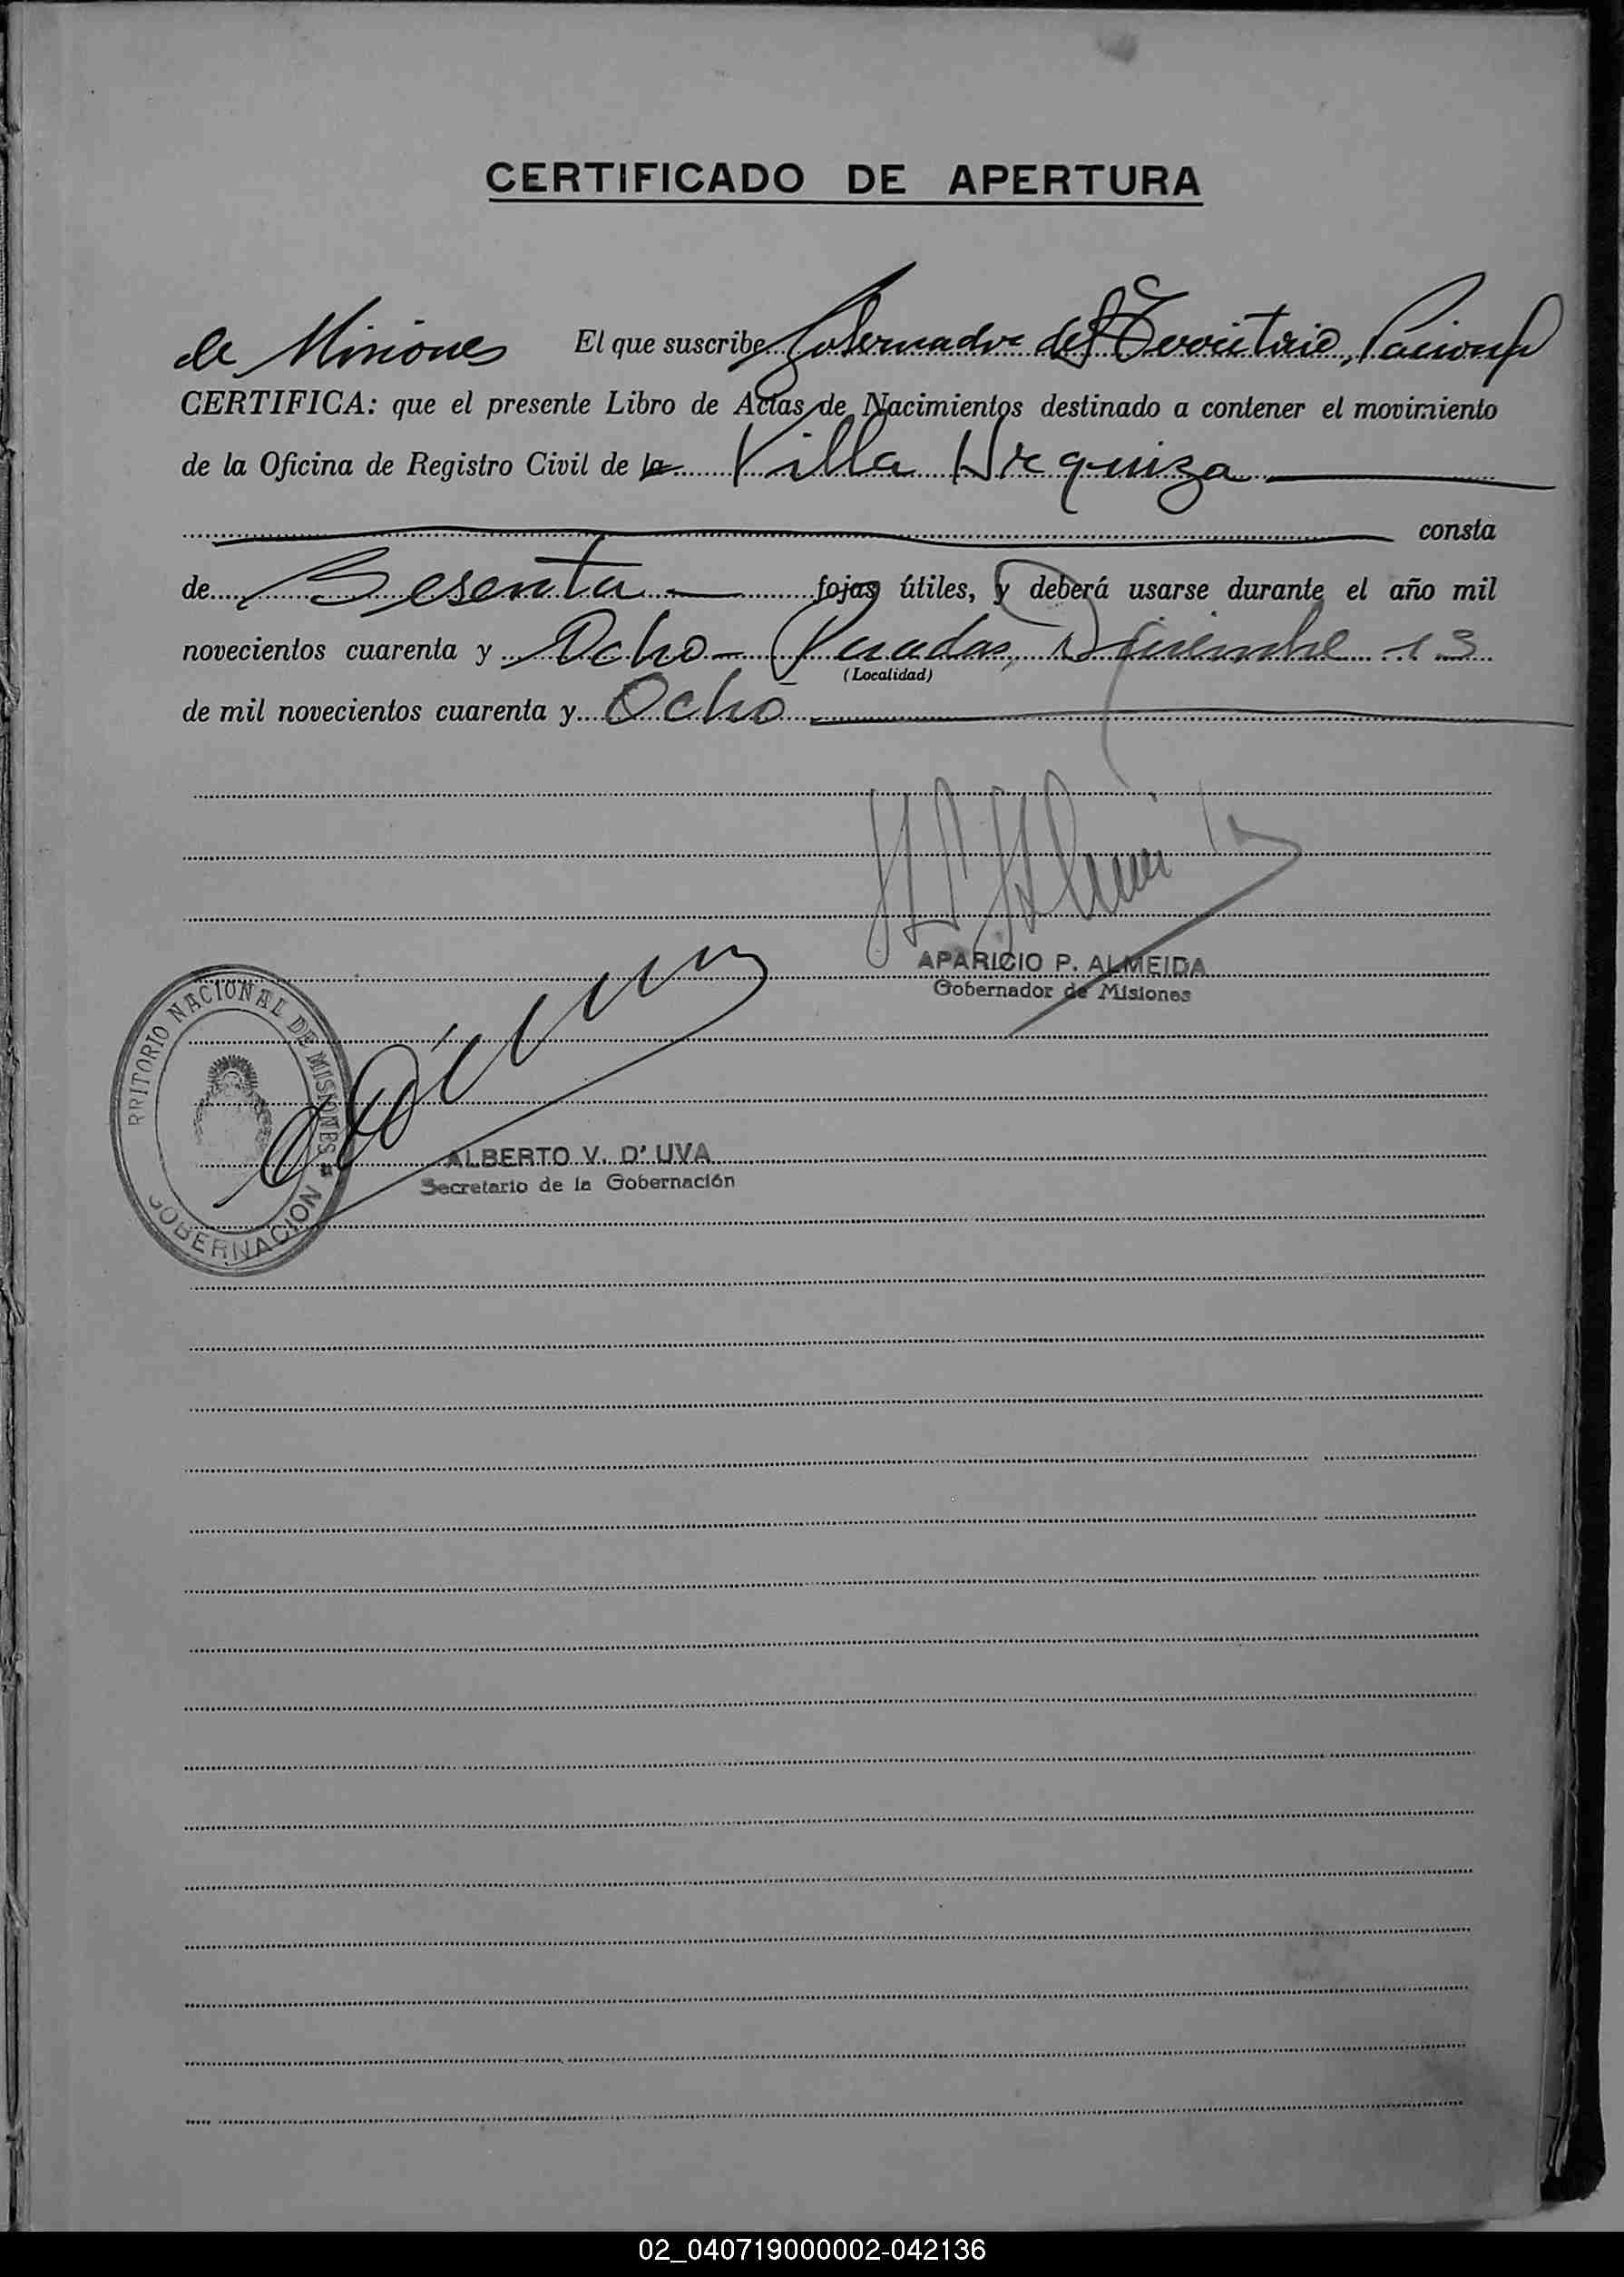 CERTIFICADO DE APERTURA
de Misiones El que suscribe Gobernador del Territorio Nacional
CERTIFICA: que el presente Libro de Actas de Nacimientos destinado a contener el movimiento
de la Oficina de Registro Civil de la Villa Urquiza
consta
de Sesenta fojas útiles, y deberá usarse durante el año mil
novecientos cuarenta y Ocho - Posadas, Diciembre 13
(Localidad)
de mil novecientos cuarenta y Ocho
APARICIO P. ALMEIDA
Gobernador de Misiones
RRITORIO NACIONAL DE MISIONES
GOBERNACION
ALBERTO V. D' UVA
Secretario de la Gobernación
02_040719000002-042136